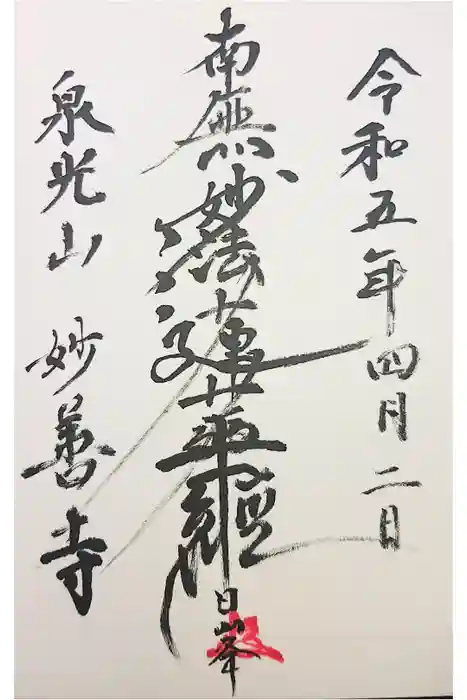 令和五年四月二日
南無妙法蓮華経
日峯
泉光山 妙善寺